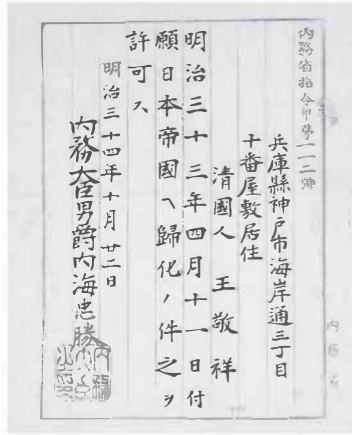 内務省指令甲第一一二號
兵庫縣神戸市海岸通三丁目
十番屋敷居住
清國人 王敬祥
明治三十三年四月十一日付
願日本帝國ヘ歸化ノ件之ヲ
許可ス
明治三十四年十月廿二日
内務大臣男爵内海忠勝
内務省